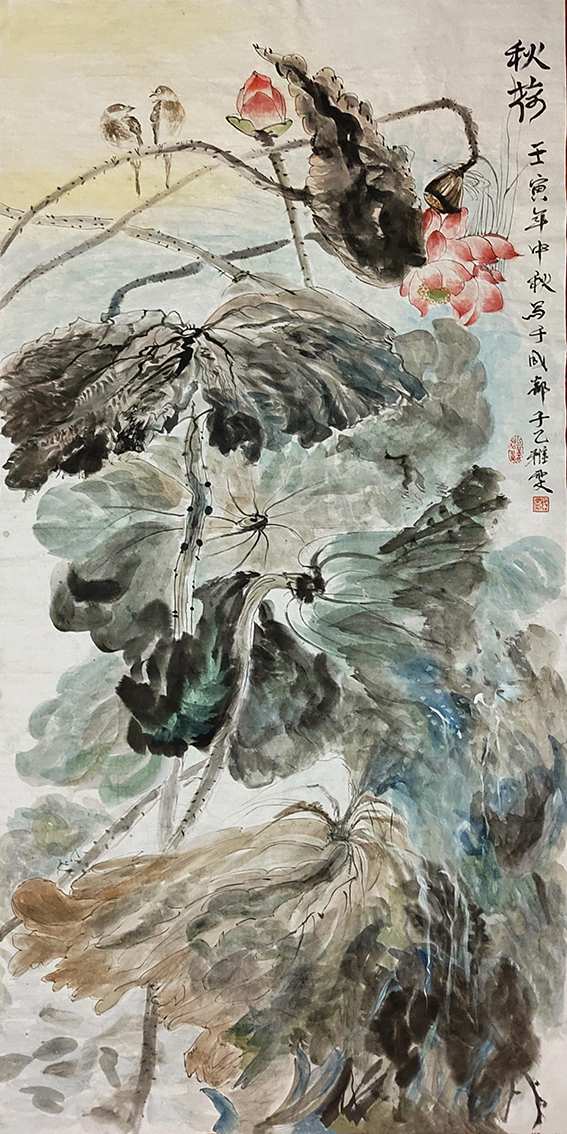 秋荷
壬寅年中秋写于成都子乙雅雯